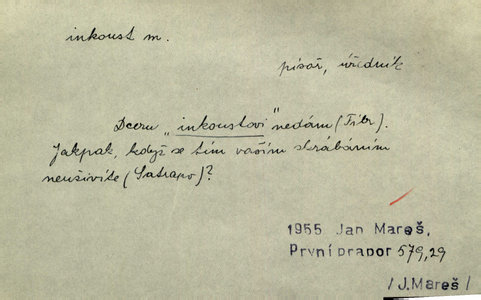 inkoust m.
písař, úředník
Dceru „inkoustovi" nedám (Fibr).
Jakpak, když se tím vaším škrábáním
neuživíte (Satrapo)?
1955 Jan Mareš,
První prapor 579,29
/J.Mareš/